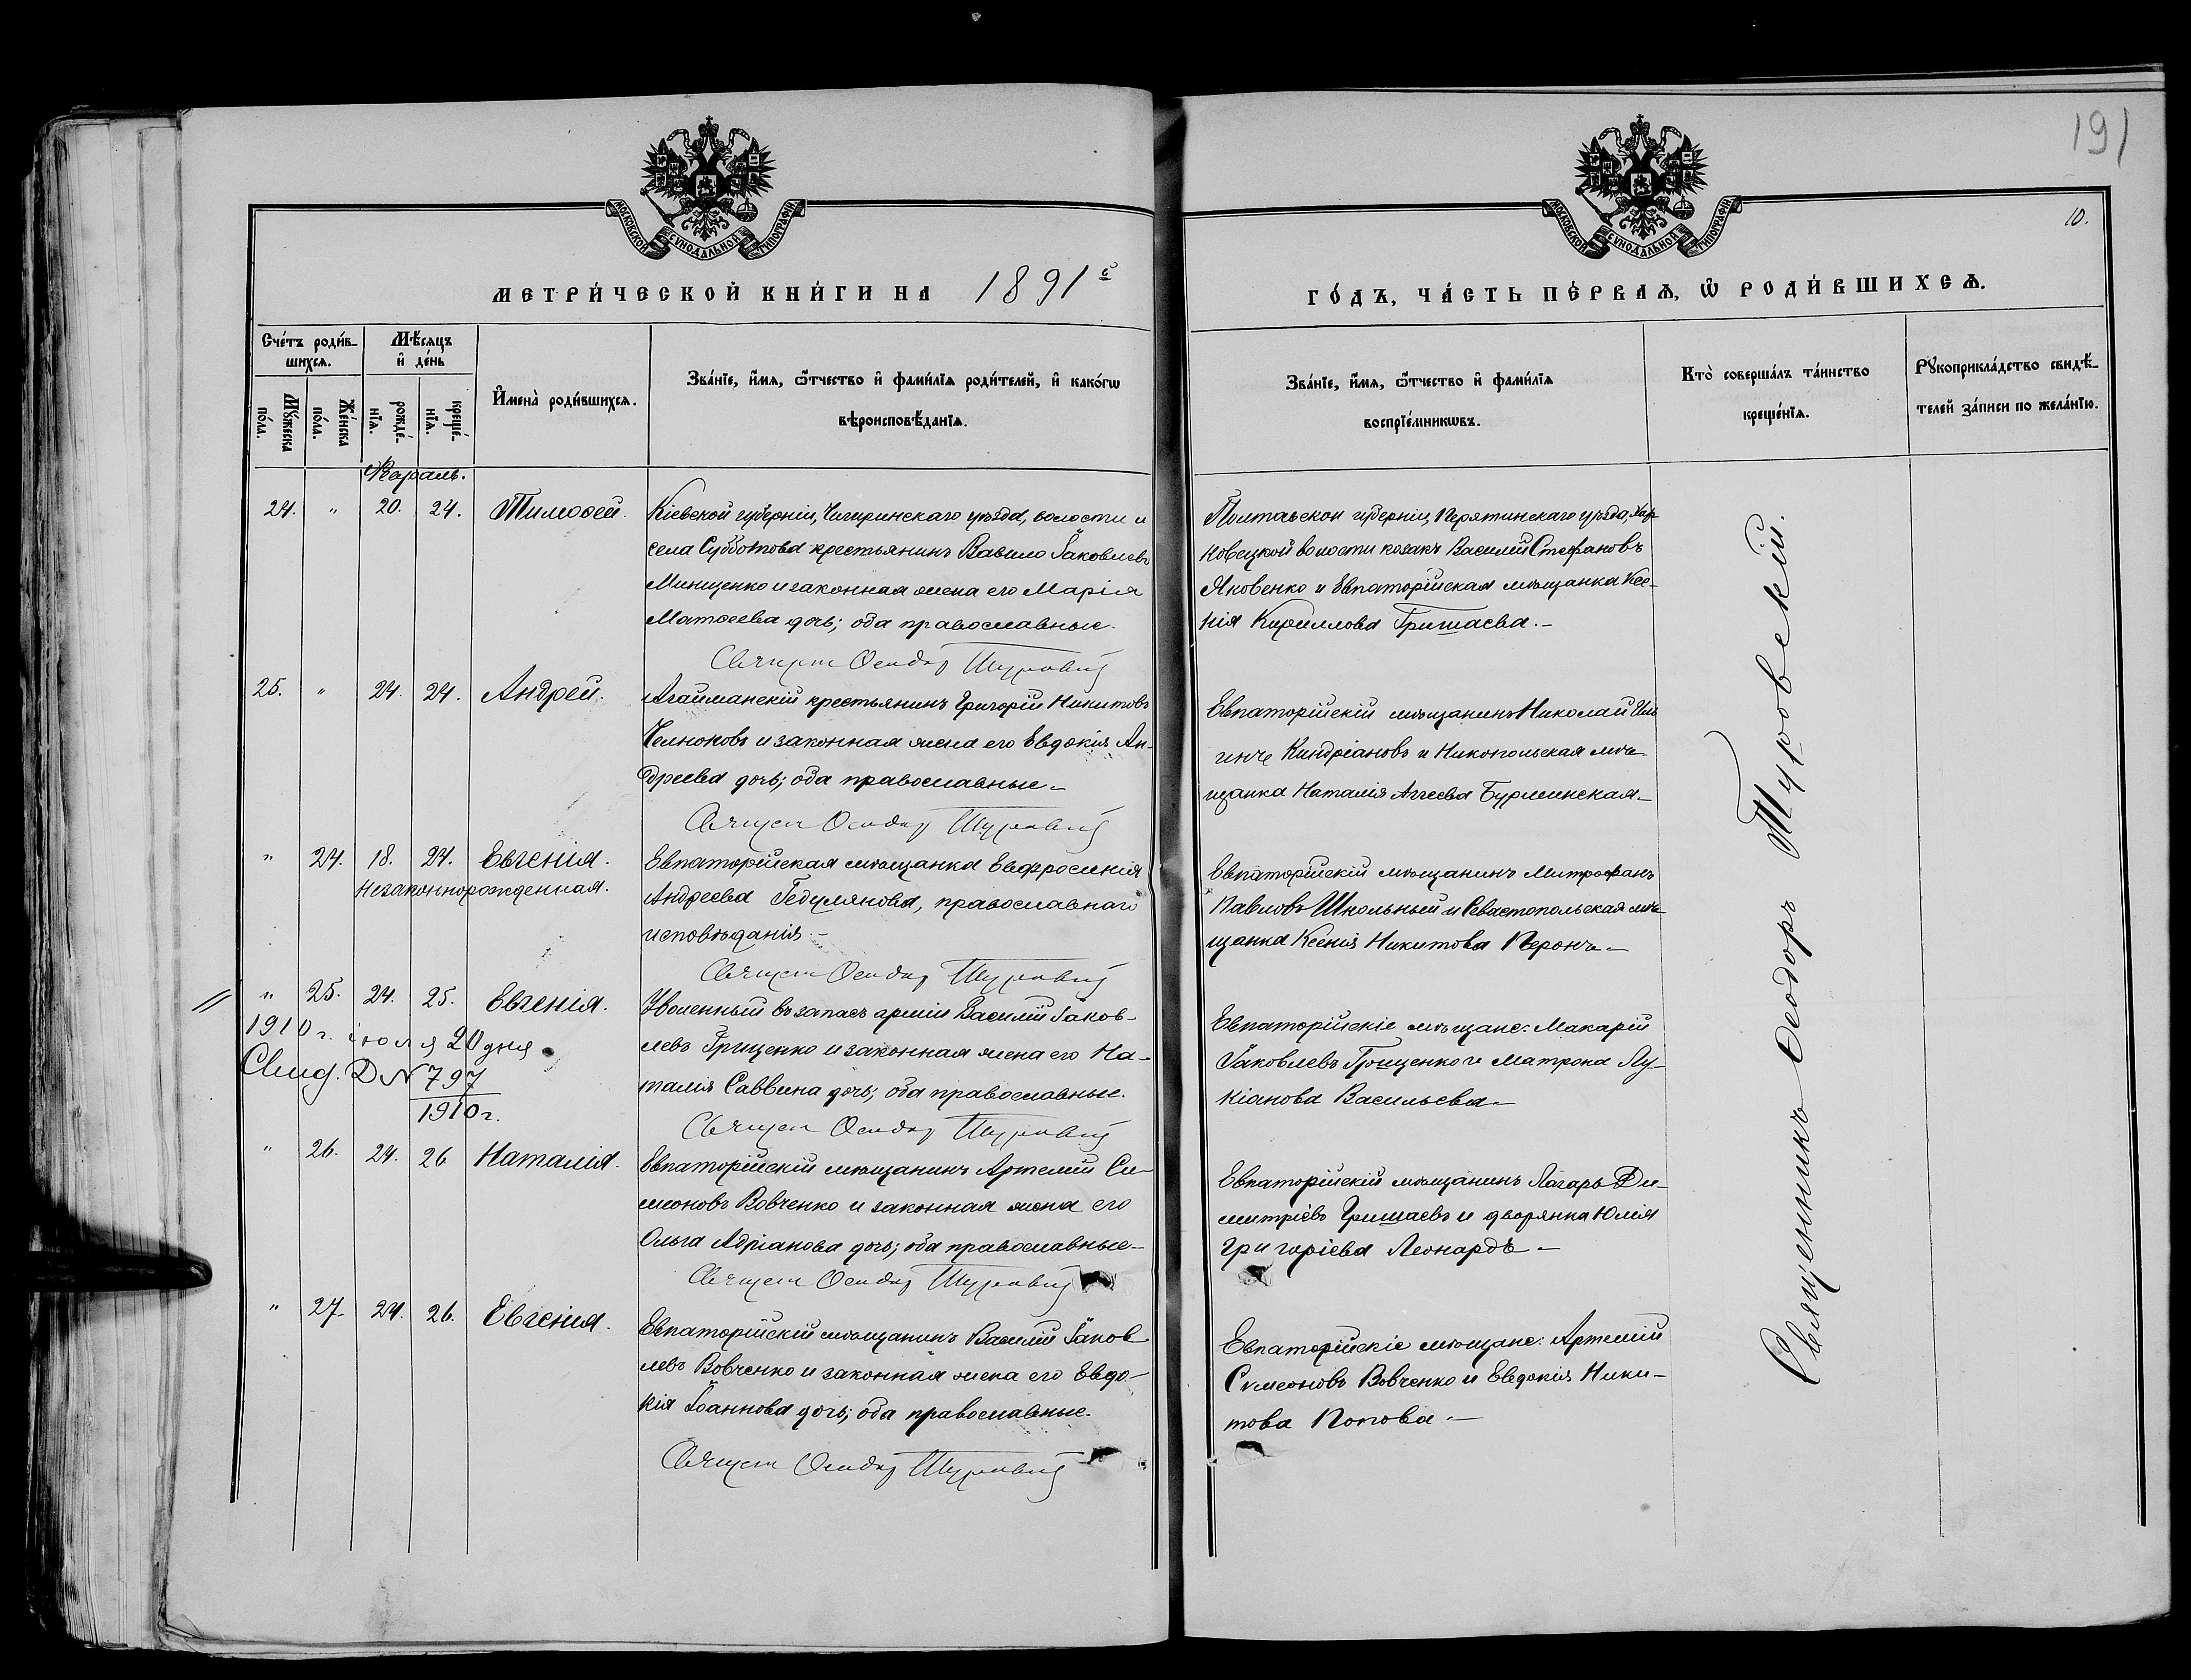 191
10.
МОСКОВСКОЙ СѴНОДАЛЬНОЙ ТИПОГРАФІИ
МОСКОВСКОЙ СѴНОДАЛЬНОЙ ТИПОГРАФІИ
МЕТРИ́ЧЕСКОЙ КНИ́ГИ НА 1891й
ГО́ДЪ, ЧА́СТЬ ПЕ́РВАѦ, Ѿ РОДИ́ВШИХСѦ.
Сче́тъ роди́в-
шихсѧ.
Мꙋ́жеска по́ла.
Же́нска по́ла.
Мѣ́сяцъ
и҆ де́нь
рожде́-
нїѧ.
креще́-
нїѧ.
И҆мена̀ роди́вшихсѧ.
Зва́нїе, и҆́мѧ, ѻ҆́тчество и҆ фами́лїѧ роди́телей, и҆ како́гѡ
вѣроисповѣ́данїѧ.
Зва́нїе, и҆́мѧ, ѻ҆́тчество и҆ фами́лїѧ
воспрїе́мникѡвъ.
Кто̀ соверша́лъ та́инство
креще́нїѧ.
Рꙋкоприкла́дство свидѣ́-
телей за́писи по жела́нїю.
Февраль.
24. " 20. 24. Тимоѳей.
Кіевской губерніи, Чигиринскаго уѣзда, волости и
села Субботова крестьянинъ Вавило Іаковлевъ
Минценко и законная жена его Марія
Матѳеева дочь; оба православные.
Священ Ѳеодор Туровскій
Полтавской губерніи, Пирятинскаго уѣзда, Хар-
ковецкой волости козакъ Василій Стефановъ
Яковенко и Евпаторійская мѣщанка Ксе-
нія Кириллова Гришаева.-
25. " 24. 24. Андрей.
Агайманскій крестьянинъ Григорій Никитовъ
Челноковъ и законная жена его Евдокія Ан-
дреева дочь; оба православные.-
Священ Ѳеодор Туровскій
Евпаторійскій мѣщанинъ Николай
Киндріановъ и Никопольская мѣ-
щанка Наталія Аггеева Бурлинская.-
" 24. 18. 24. Евгенія.
Незаконнорожденная.
Евпаторійская мѣщанка Евфросинія
Андреева Гедулянова, православнаго
исповѣданія.-
Священ Ѳеодор Туровскій
Евпаторійскій мѣщанинъ Митрофанъ
Павловъ Школьный и Севастопольская мѣ-
щанка Ксенія Никитова Перонъ.-
" 25. 24. 25. Евгенія.
1910 г. іюля 20 дня
Свид. D N 797
1910 г.
Уволенный въ запасъ арміи Василій Іаков-
левъ Грищенко и законная жена его На-
талія Саввина дочь; оба православные.
Священ Ѳеодор Туровскій
Евпаторійскіе мѣщане: Макарій
Іаковлевъ Грищенко и Матрона Лу-
кіанова Васильева.-
" 26. 24. 26 Наталія.
Евпаторійскій мѣщанинъ Артемій Си-
меоновъ Вовченко и законная жена его
Ольга Адріанова дочь; оба православные.-
Священ Ѳеодор Туровскій
Евпаторійскій мѣщанинъ Лазарь Ди-
митріевъ Гришаевъ и дворянка Юлія
Григоріева Леонардъ.-
" 27. 24. 26. Евгенія.
Евпаторійскій мѣщанинъ Василій Іаков
левъ Вовченко и законная жена его Евдо-
кія Іоаннова дочь; оба православные.
Священ Ѳеодор Туровскій
Евпаторійскіе мѣщане: Артемій
Симеоновъ Вовченко и Евдокія Ники-
това Попова.-
Священникъ Ѳеодоръ Туровскій.